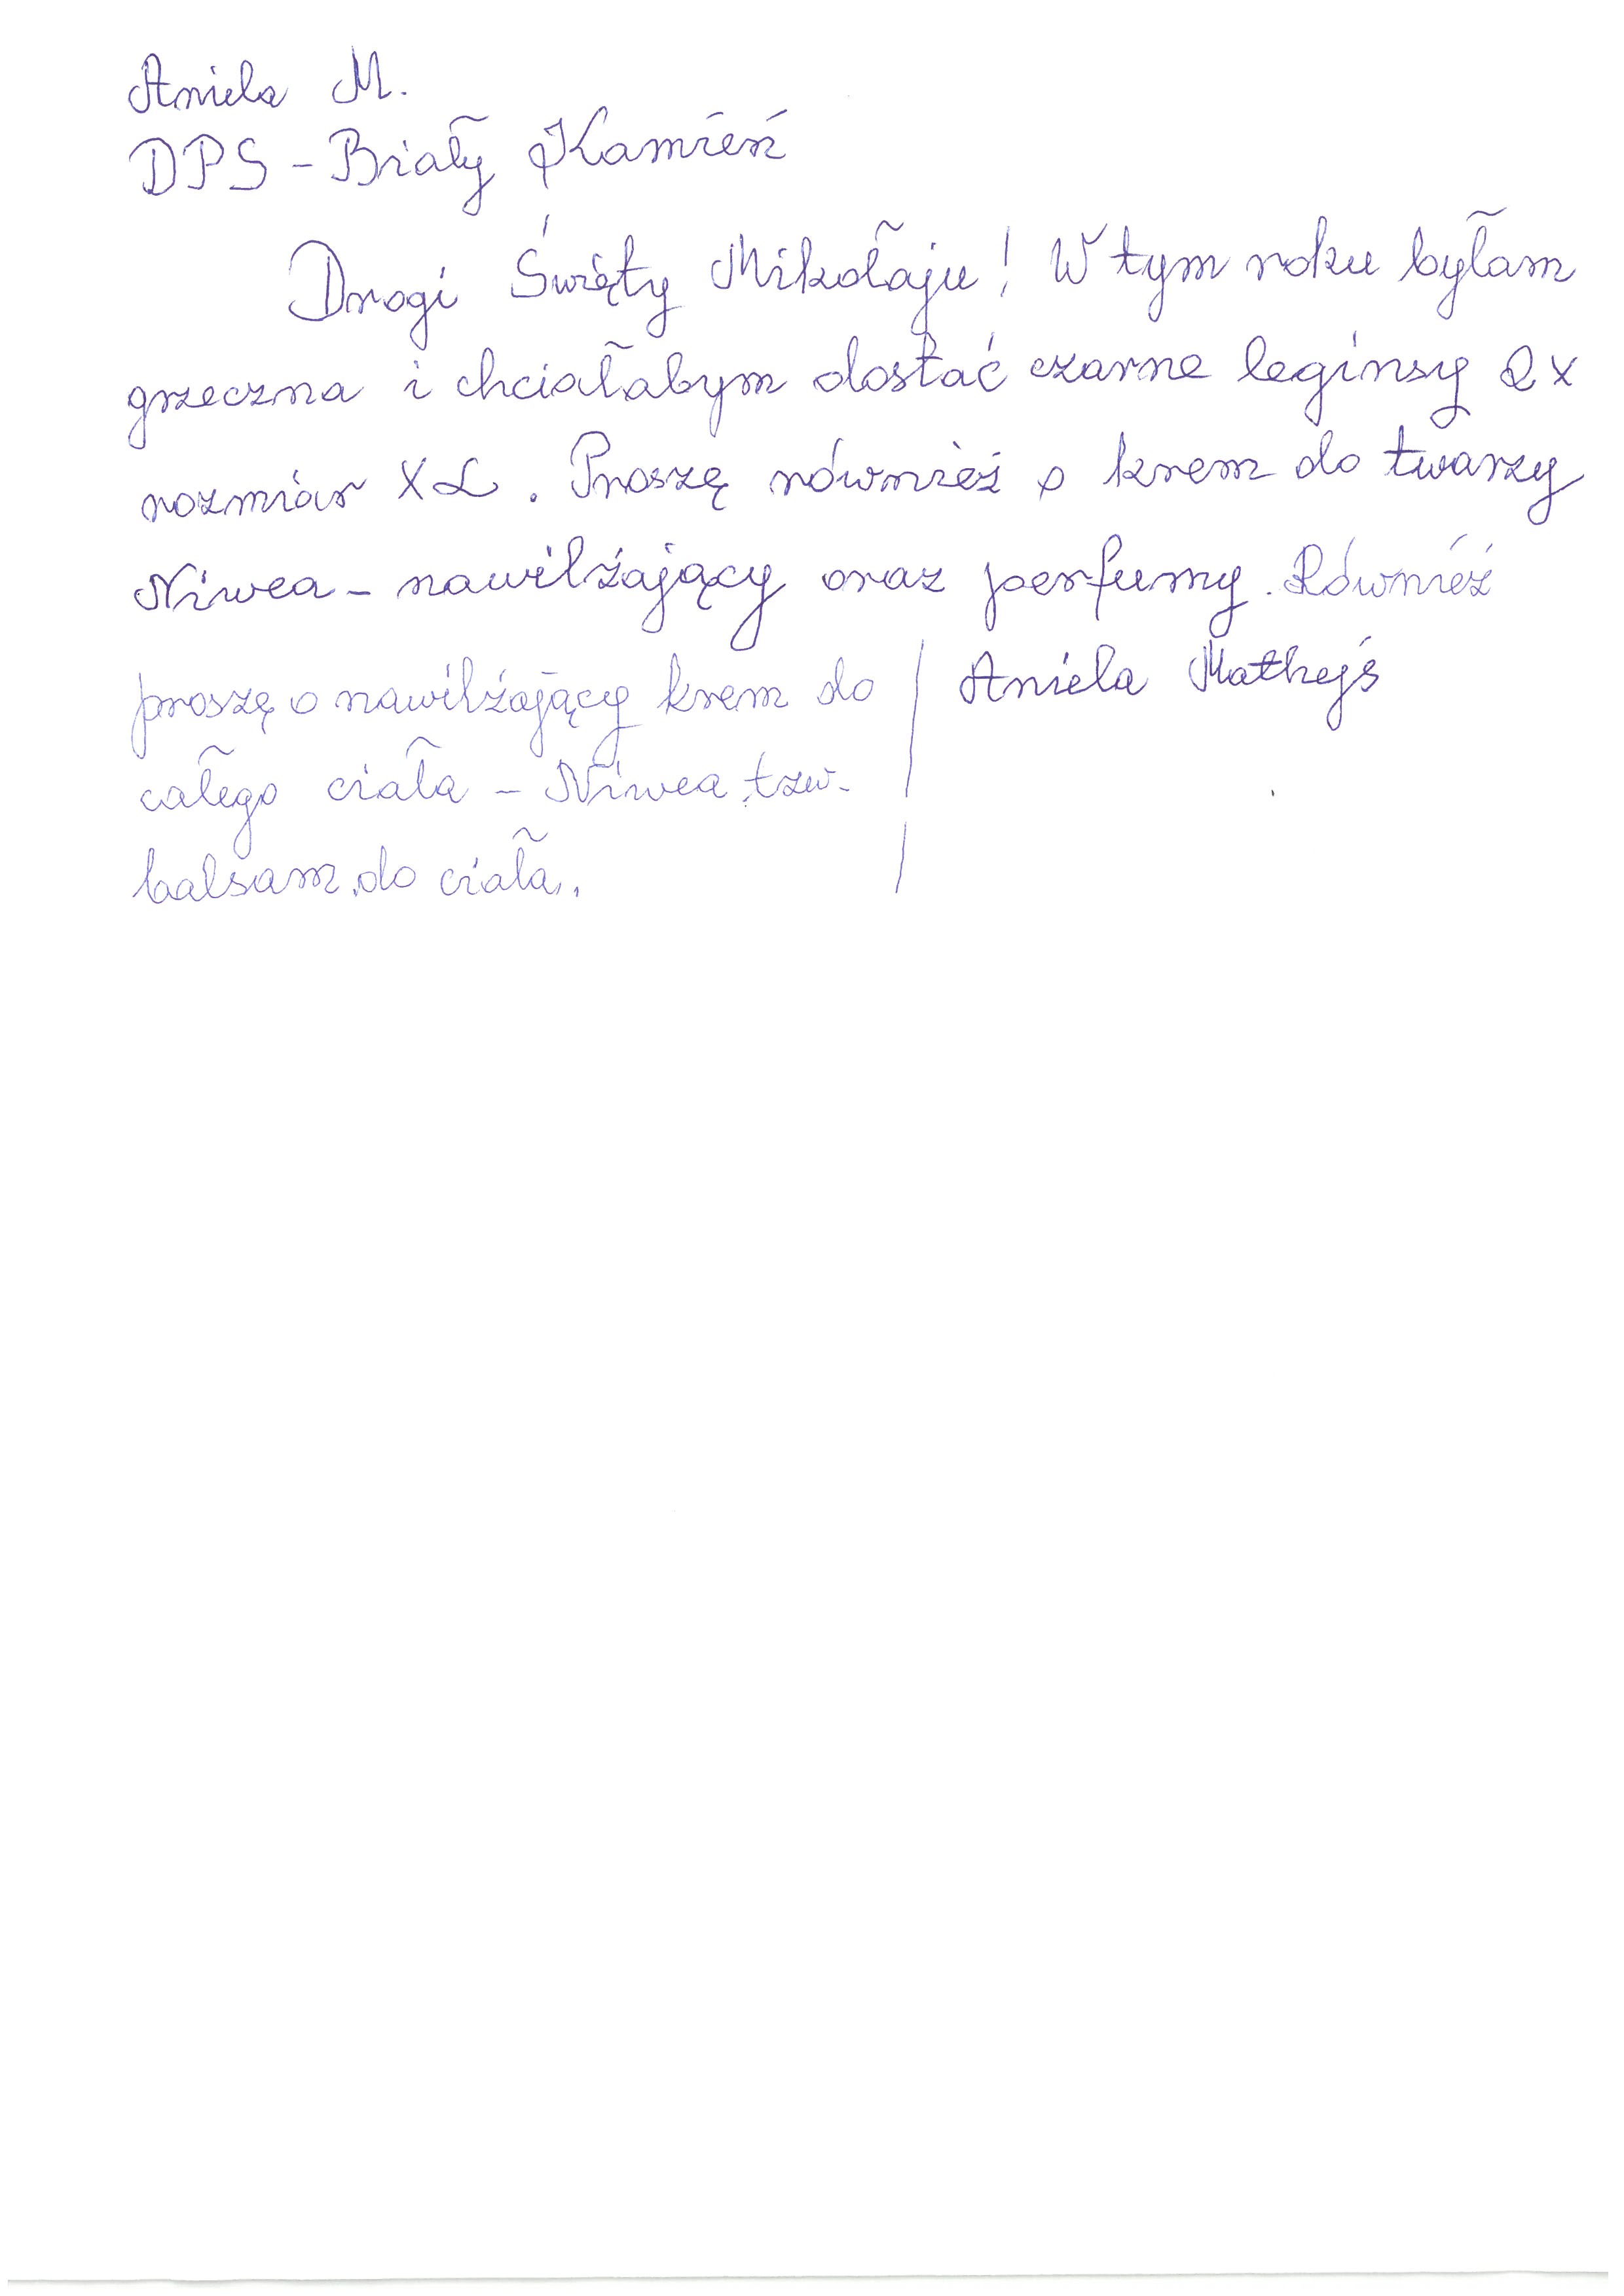 Aniela M.
DPS - Biały Kamień
Drogi Święty Mikołaju! W tym roku byłam
grzeczna i chciałabym dostać czarne leginsy 2x
rozmiar XL. Proszę również o krem do twarzy
Niwea - nawilżający oraz perfumy. Również
proszę o nawilżający krem do
całego ciała - Niwea tzw.
balsam do ciała.
Aniela Mathejś